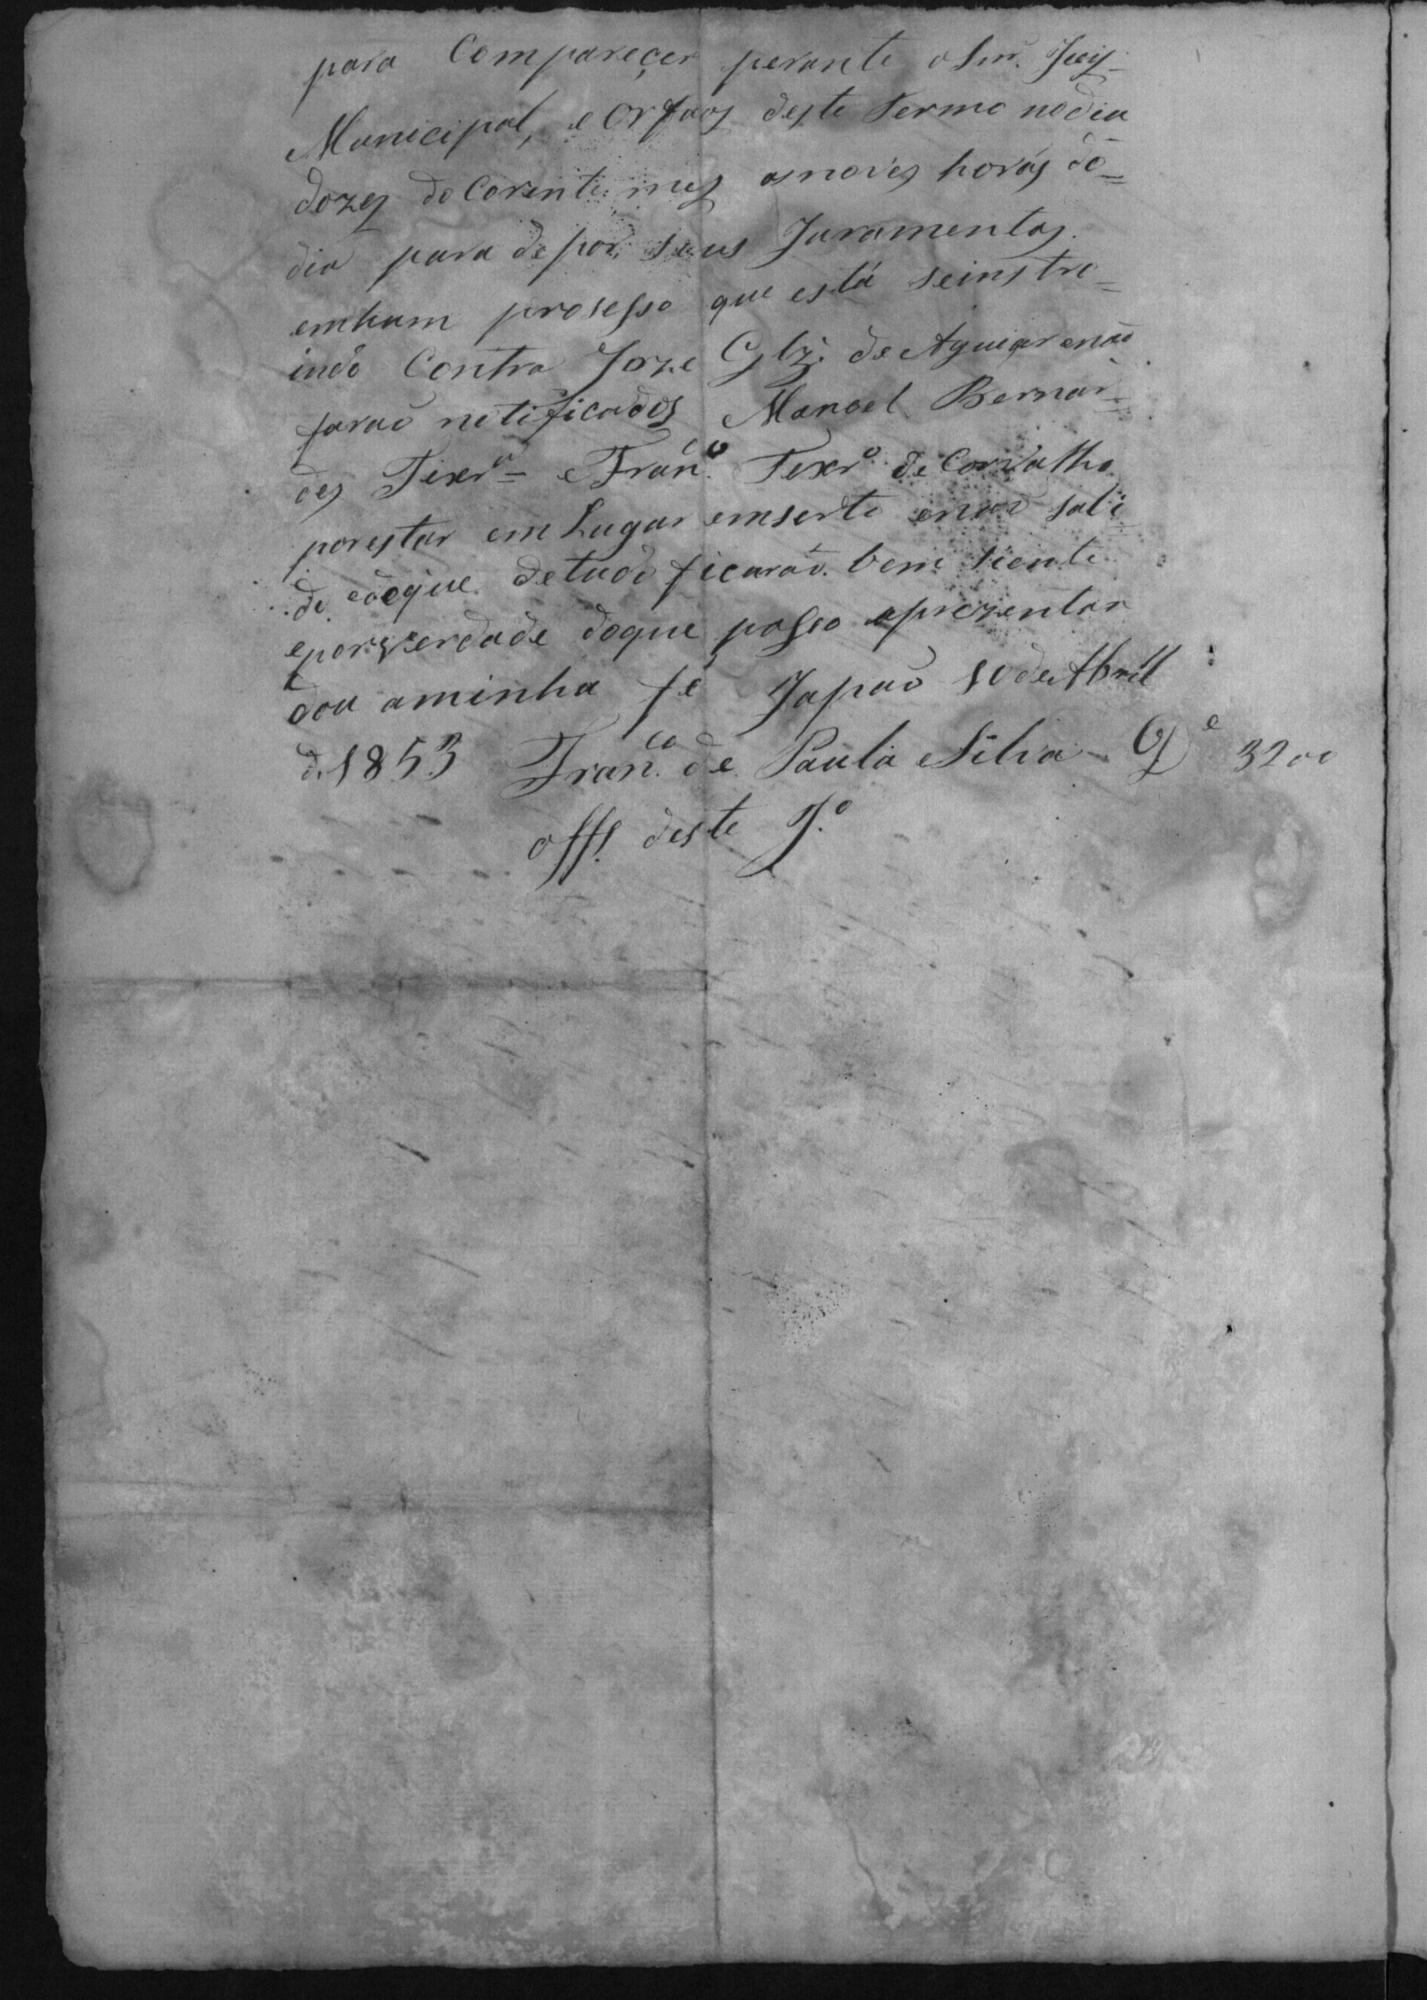 para Compareçer perante o Snr. Juiz
Municipal, e Orfaos deste Termo no dia
dozes do Corente mez as noves horas do=
dia para depor seus Juramentos.
emhum prosesso que está seinstro=
indo Contra Joze Glz. de Aguiar enão
forão notificados Manoel Bernar=
des Teixrª= e Franco. Teixrª de Carvalho
porestar em Lugar emserto enão sabi
do eoque detudo ficarão bem siente
eporserverdade doque posso aprezentar
dou aminha fé Japão 10 de Abrill
de 1853 Franco. de Paula Silva 3200
offl. deste J.o